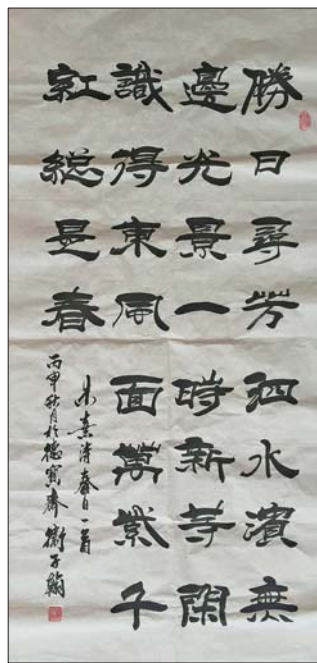 勝日尋芳泗水濱無
邊光景一時新等閑
識得東風面萬紫千
紅総是春
朱熹詩春日一首
丙申秋月於德寳齋